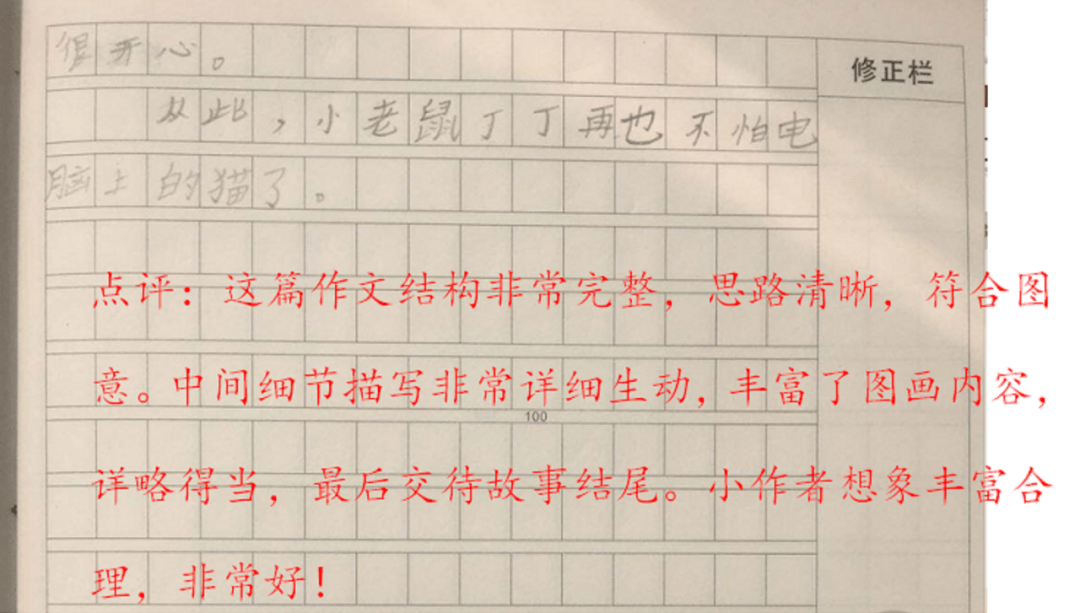 很开心。
修正栏
从此，小老鼠丁丁再也不怕电
脑上的猫了。
点评：这篇作文结构非常完整，思路清晰，符合图
意。中间细节描写非常详细生动，丰富了图画内容，
100
详略得当，最后交待故事结尾。小作者想象丰富合
理，非常好！